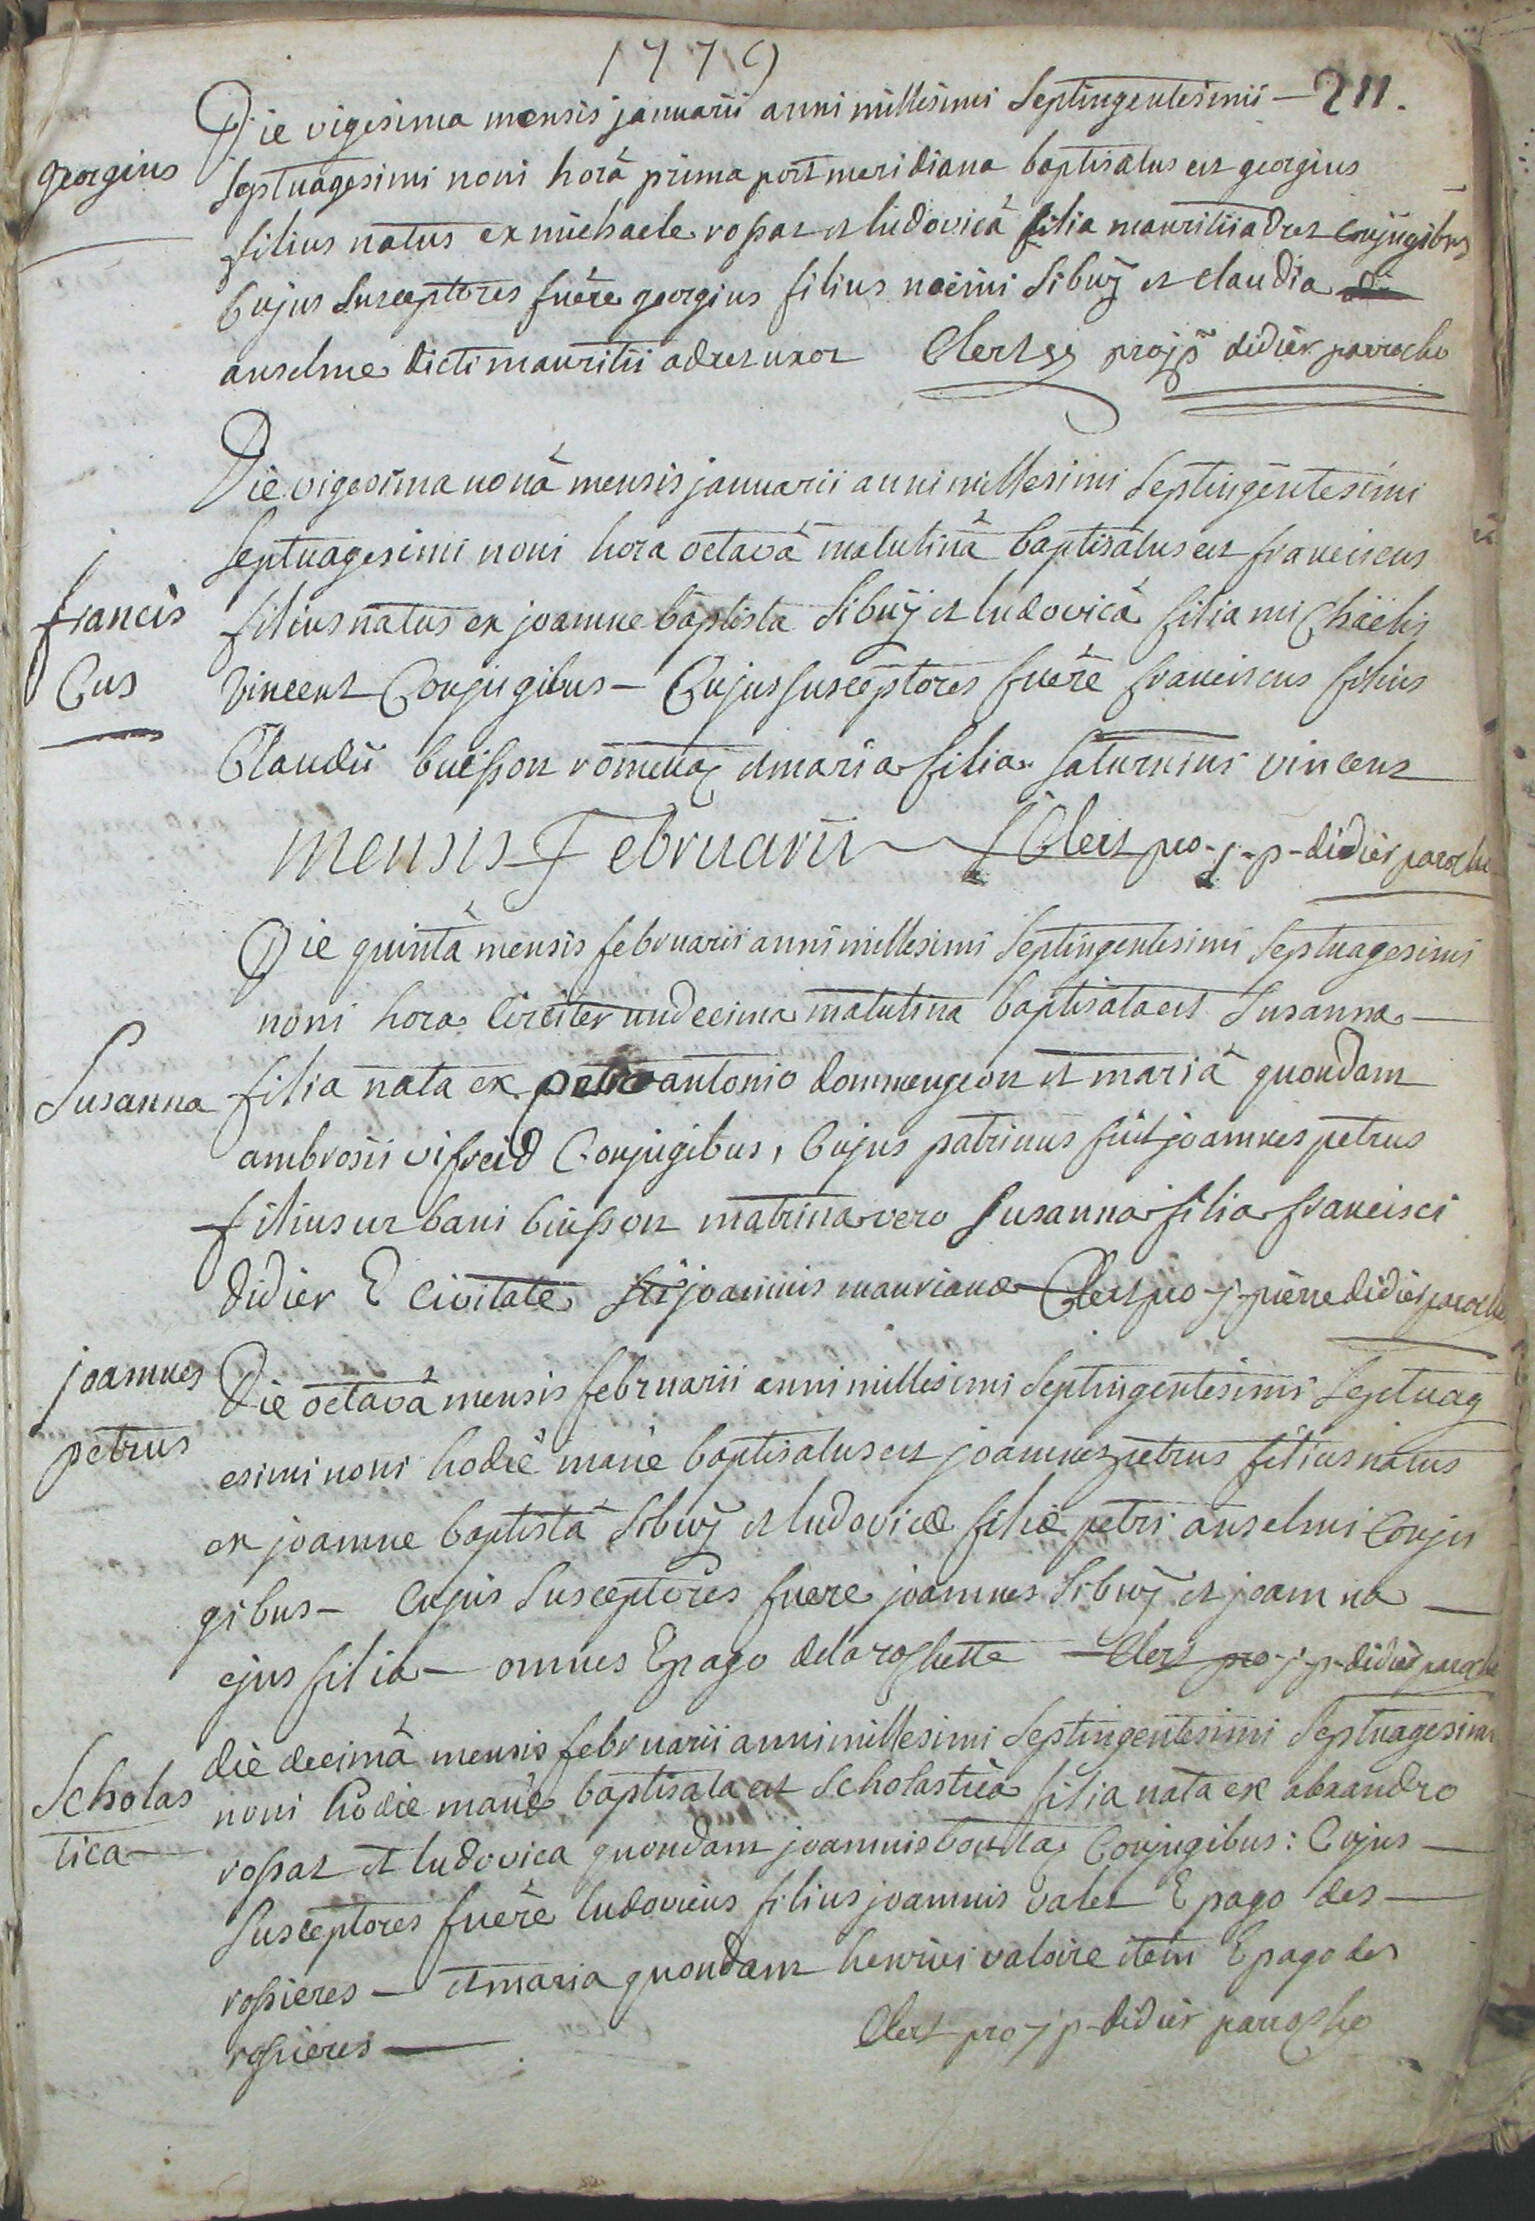 1779
211.
Die vigesima mensis januarii anni millesimi Septingentesimi —
georgius
Septuagesimi noni horâ prima post meridiana baptisatus est georgius
filius natus ex michaele rossat et ludovicâ filia mauritii adret Conjugibus
Cujus Susceptores fuêre georgius filius noëmi Sibuÿ et Claudia
anselme dicti mauritii adret uxor Clert pro didier parrocho
Die vigesima nonâ mensis januarii anni millesimi Septingentesimi
Septuagesimi noni hora octavâ matutinâ baptisatus est franciscus
francis
Cus
filius natus ex joanne baptista Sibuÿ et ludovicâ filia miChaëlis
Vincent Conjugibus — Cujus Susceptores fuêre franciscus filius
Claudii buisson et maria filia Saturnini vincent
mensis Februarii Clert pro - j - p - didier parocho
Die quintâ mensis februarii anni millesimi Septingentesimi Septuagesimi
noni hora Circiter undecima matutina baptisata est Susanna —
Susanna
filia nata ex petro antonio dommengeon et mariâ quondam
ambrosii vifreid Conjugibus, Cujus patrinus fuit joannes petrus
filius urbani buisson matrina vero Susanna filia francisci
didier E Civitate Sti joannis maurianæ Clert pro - j - pierre didier parocho
joannes
petrus
Die octavâ mensis februarii anni millesimi Septingentesimi Septuag
esimi noni hodiè mane baptisatus est joannes petrus filius natus
ex joanne baptistâ Sibuÿ et ludovicæ filiæ petri anselmi Conju
gibus — Cujus Susceptores fuere joannes Sibuÿ et joanna —
ejus filia — omnes E pago de la rochette Clert pro - j - p - didier parocho
die decimâ mensis februarii anni millesimi Septingentesimi Septuagesimi
Scholas
tica —
noni hodie manè baptisata est Scholastica filia nata ex alexandro
rossat et ludovica quondam joannis Conjugibus : Cujus —
Susceptores fuêre ludovicus filius joannis valet E pago des —
rossieres — et maria quondam henrici valoire item E pago des
rossieres —
Clert pro j p didier parrocho